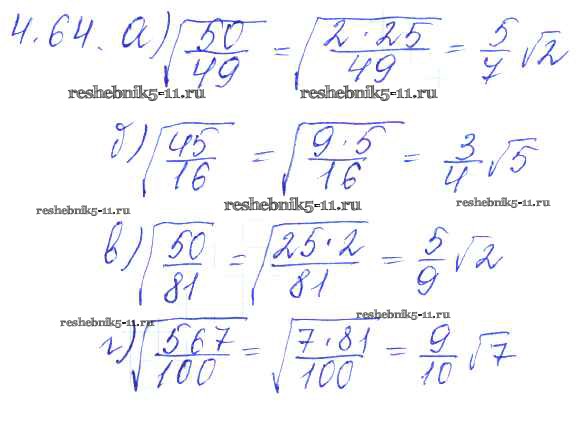 4.64. а) √(50/49) = √(2·25/49) = 5/7 √2
reshebnik5-11.ru reshebnik5-11.ru
б) √(45/16) = √(9·5/16) = 3/4 √5
reshebnik5-11.ru reshebnik5-11.ru reshebnik5-11.ru
в) √(50/81) = √(25·2/81) = 5/9 √2
reshebnik5-11.ru reshebnik5-11.ru
г) √(567/100) = √(7·81/100) = 9/10 √7